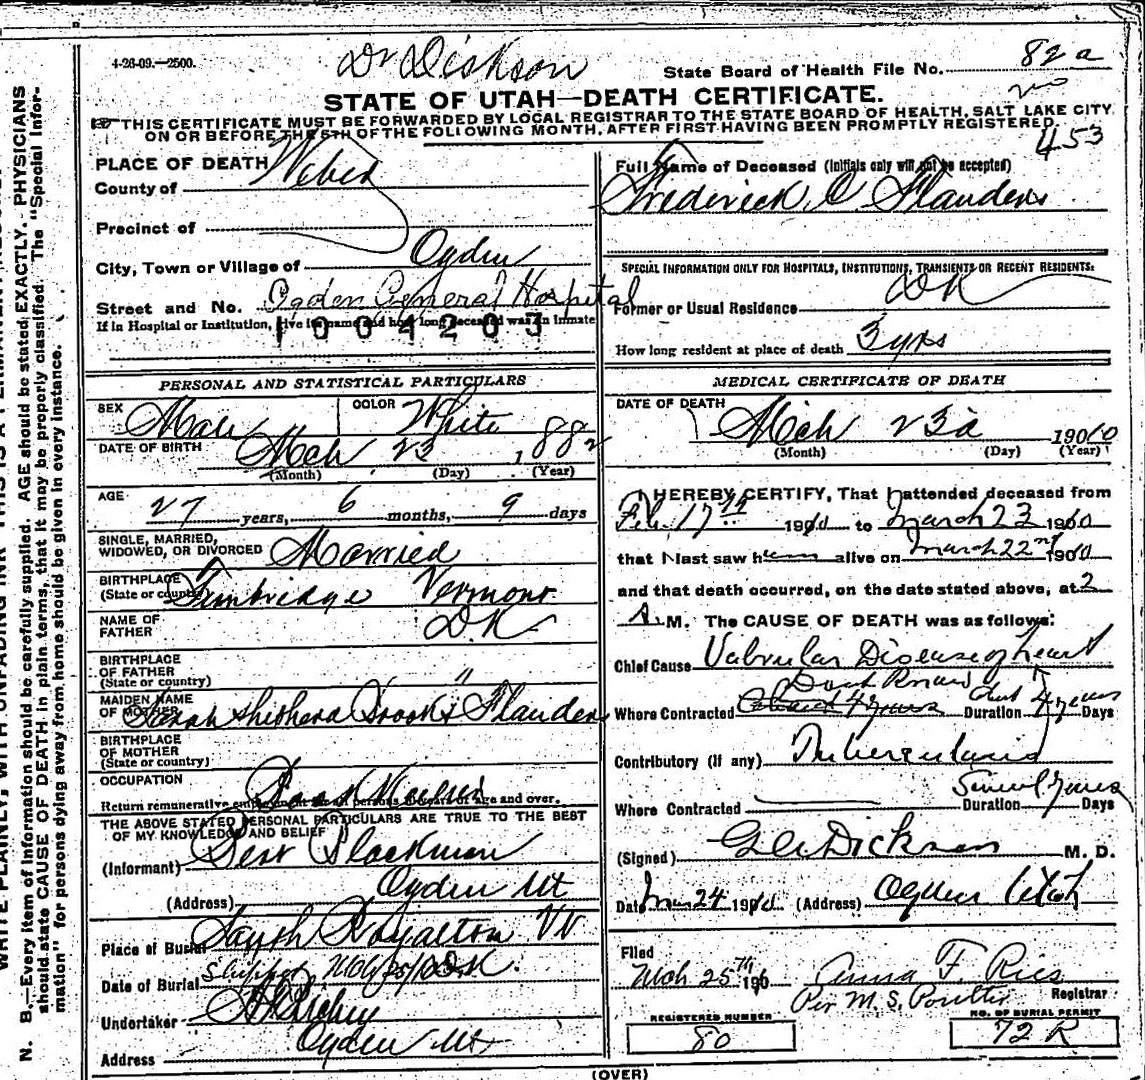 4-26-09.—2500.
Dr Dickson
State Board of Health File No. 82a
STATE OF UTAH—DEATH CERTIFICATE.
THIS CERTIFICATE MUST BE FORWARDED BY LOCAL REGISTRAR TO THE STATE BOARD OF HEALTH, SALT LAKE CITY
ON OR BEFORE THE 5TH OF THE FOLLOWING MONTH, AFTER FIRST HAVING BEEN PROMPTLY REGISTERED.
453
PLACE OF DEATH
County of Weber
Precinct of
City, Town or Village of Ogden
Street and No. Ogden General Hospital
If in Hospital or Institution, give its name and how long deceased was an inmate
1004203
Full Name of Deceased (Initials only will not be accepted)
Frederick C Flanders
SPECIAL INFORMATION ONLY FOR HOSPITALS, INSTITUTIONS, TRANSIENTS OR RECENT RESIDENTS:
Former or Usual Residence DK
How long resident at place of death 3 yrs
PERSONAL AND STATISTICAL PARTICULARS
SEX Male COLOR White
DATE OF BIRTH Mch 23 1882
(Month) (Day) (Year)
AGE 27 years, 6 months, 9 days
SINGLE, MARRIED,
WIDOWED, OR DIVORCED Married
BIRTHPLACE
(State or country) Tunbridge Vermont
NAME OF
FATHER D.K
BIRTHPLACE
OF FATHER
(State or country) "
MAIDEN NAME
OF MOTHER Sarah Shepherd Brooks Flanders
BIRTHPLACE
OF MOTHER
(State or country)
OCCUPATION
Return remunerative employment of all persons 10 years of age and over.
THE ABOVE STATED PERSONAL PARTICULARS ARE TRUE TO THE BEST
OF MY KNOWLEDGE AND BELIEF
(Informant) Blackman
(Address) Ogden Ut
Place of Burial South Royalton Vt
Date of Burial Shipped Mch 25/10
Undertaker
Address Ogden Ut
MEDICAL CERTIFICATE OF DEATH
DATE OF DEATH
Mch 23d 1910
(Month) (Day) (Year)
I HEREBY CERTIFY, That I attended deceased from
Feb. 17th 1910 to March 23 1910
that I last saw him alive on March 22nd 1910
and that death occurred, on the date stated above, at 2
A. M. The CAUSE OF DEATH was as follows:
Chief Cause Valvular Disease of heart
Dont Know
Where Contracted Duration 4 years Days
Contributory (if any) Tuberculosis
Where Contracted Duration Several years Days
(Signed) Dickson M. D.
Date Mar 24 1910 (Address) Ogden Utah
Filed
Mch 25th 190 Anna F. Ries
Per M. S. Poulter Registrar
REGISTERED NUMBER
80
NO. OF BURIAL PERMIT
72 R
(OVER)
N. B.—Every item of Information should be carefully supplied. AGE should be stated EXACTLY. PHYSICIANS
should state CAUSE OF DEATH in plain terms, that it may be properly classified. The "Special Infor-
mation" for persons dying away from home should be given in every instance.